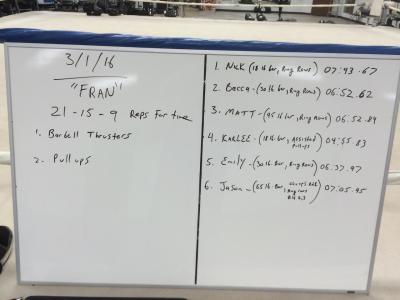 3/1/16
"FRAN"
21-15-9 Reps for time
1. Barbell Thrusters
2. Pull ups
1. Nick - (18 lb bar, Ring Rows) 07:43.67
2. Becca - (30 lb bar, Ring Rows) 06:52.62
3. MATT - (95 lb bar, Ring Rows) 06:52.84
4. KARLEE - (18 lb bar, Assisted Pull-ups) 04:55.83
5. Emily - (30 lb bar, Ring Rows) 06:37.97
6. Jason - (65 lb Bar, Ring rows) 07:05.95